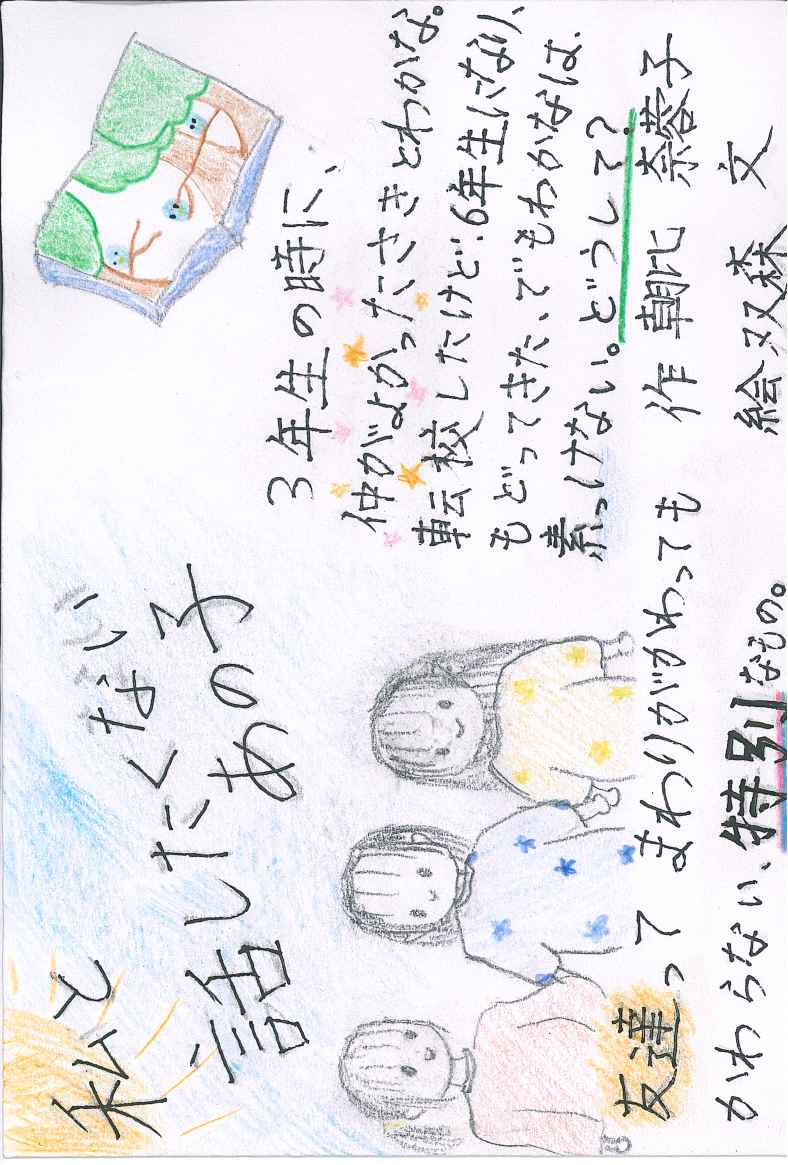 私と
話したくない
あの子
3年生の時に、
仲がよかったさきとわかな。
転校したけど、6年生になり、
もどってきた、でもわかなは、
素っけない。どうして?
作 朝比奈蓉子
絵 双森 文
友達って まわりがかわっても
かわらない、特別なもの。